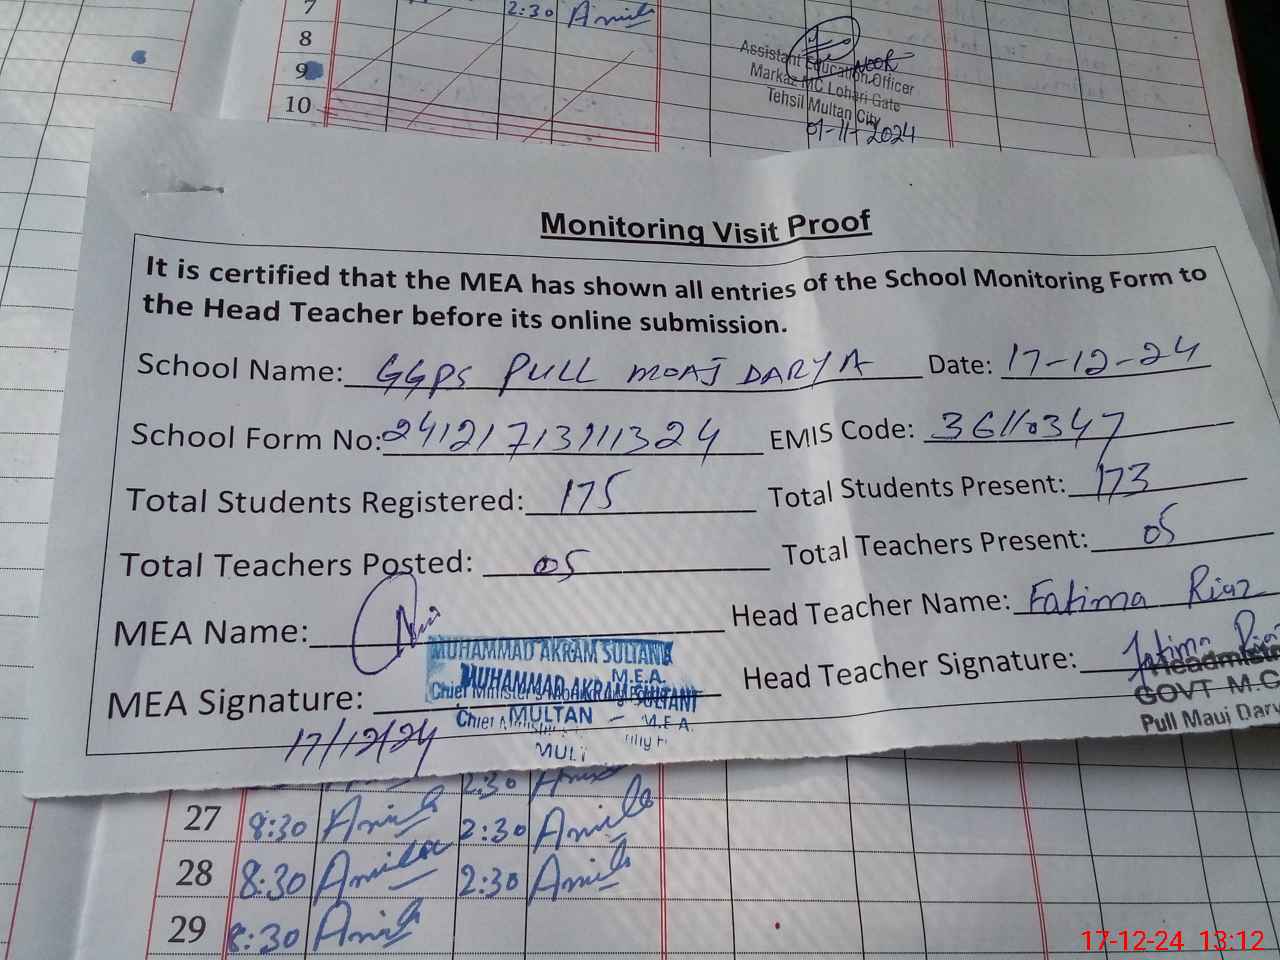 7
2:30 Amib
8
9
10
Assistant Education Officer
Markaz MC Lohari Gate
Tehsil Multan City
01-11-2024
Monitoring Visit Proof
It is certified that the MEA has shown all entries of the School Monitoring Form to
the Head Teacher before its online submission.
School Name: GGPS PULL MOAJ DARYA Date: 17-12-24
School Form No: 24121713111324 EMIS Code: 36110347
Total Students Registered: 175 Total Students Present: 173
Total Teachers Posted: 05 Total Teachers Present: 05
MEA Name: Head Teacher Name: Fatima Riaz
MEA Signature: Head Teacher Signature: Fatima Riaz
MUHAMMAD AKRAM SULTANI
M.E.A.
MUHAMMAD AKRAM SULTANI
MULTAN
Chief M.E.A.
MULT
17/12/24
GOVT M.C
Pull Mauj Dary
2:30
27 8:30 2:30
28 8:30 2:30
29 8:30
17-12-24 13:12